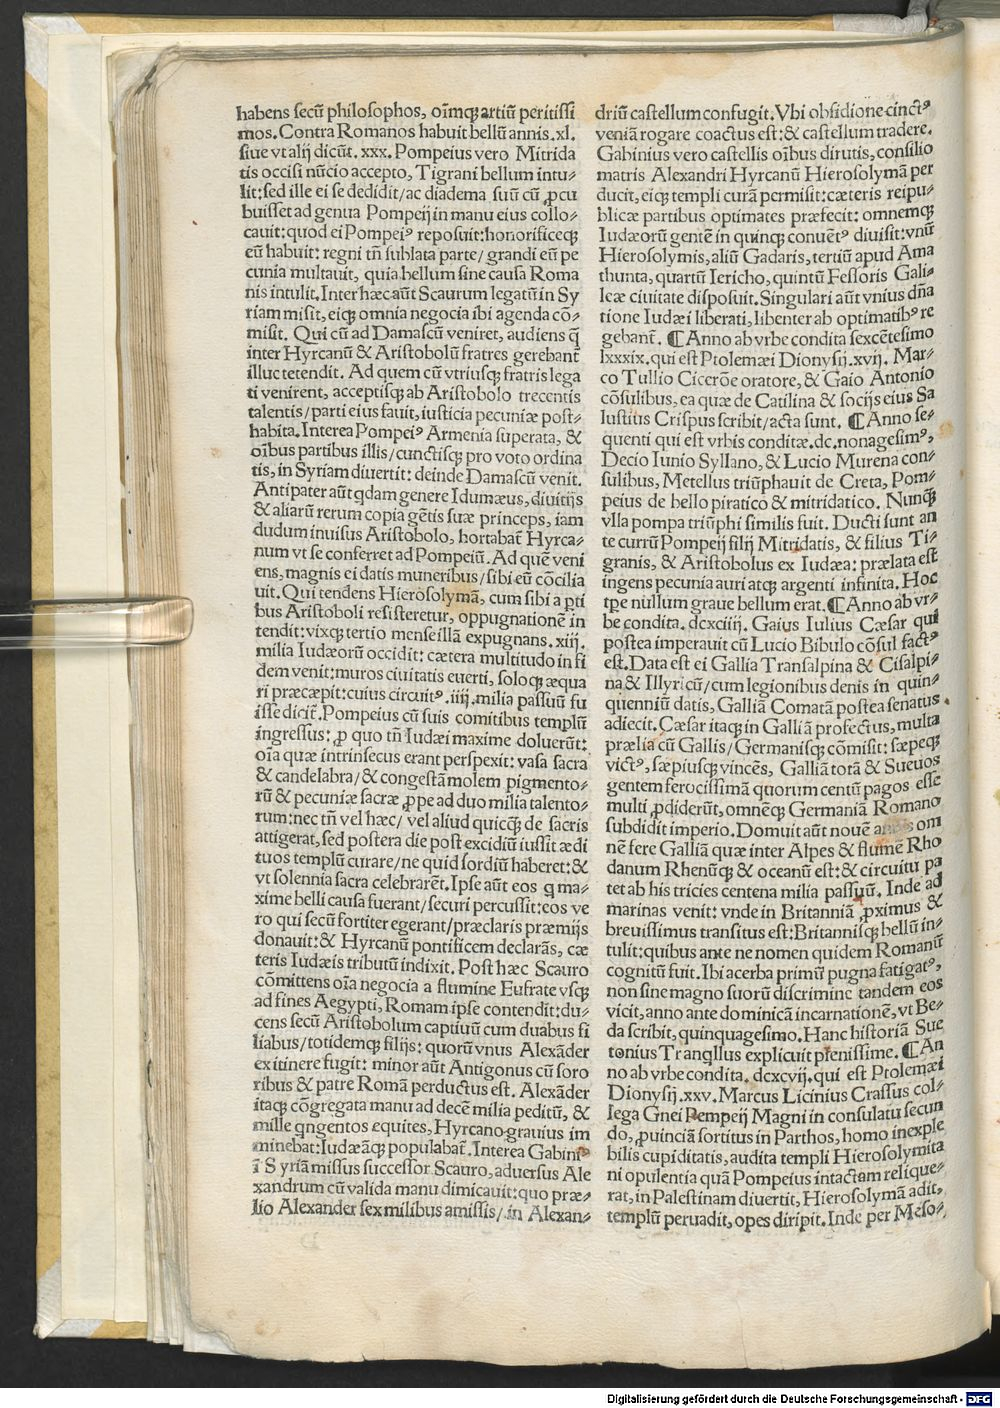 habens secū philosophos, oīmq̃ artiū peritissi
mos. Contra Romanos habuit bellū annis .xl.
siue vt alij dicūt .xxx. Pompeius vero Mitrida
tis occisi nūcio accepto, Tigrani bellum intu⸗
lit: sed ille ei se dedidit/ac diadema suū cū ꝓcu
buisset ad genua Pompeij in manu eius collo⸗
cauit: quod ei Pompeiꝰ reposuit: honorificeqꝫ
eū habuit: regni tñ sublata parte/grandi eū pe
cunia multauit, quia bellum sine causa Roma
nis intulit. Inter hæc aūt Scaurum legatū in Sy
riam misit, eiqꝫ omnia negocia ibi agenda cō⸗
misit. Qui cū ad Damascū veniret, audiens q̄
inter Hyrcanū & Aristobolū fratres gerebant̄
illuc tetendit. Ad quem cū vtriusqꝫ fratris lega
ti venirent, acceptisqꝫ ab Aristobolo trecentis
talentis/parti eius fauit, iusticia pecuniæ post⸗
habita. Interea Pompeiꝰ Armenia superata, &
oībus partibus illis/cunctisqꝫ pro voto ordina
tis, in Syriam diuertit: deinde Damascū venit.
Antipater aūt qdam genere Idumæus, diuitijs
& aliarū rerum copia gētis suæ princeps, iam
dudum inuisus Aristobolo, hortabat̄ Hyrca⸗
num vt se conferret ad Pompeiū. Ad quē veni
ens, magnis ei datis muneribus/sibi eū cōcilia
uit. Qui tendens Hierosolymā, cum sibi a ꝑti
bus Aristoboli resisteretur, oppugnationē in
tendit: vixqꝫ tertio mense illā expugnans .xiij.
milia Iudæorū occidit: cætera multitudo in fi
dem venit: muros ciuitatis euerti, soloqꝫ æqua
ri præcæpit: cuius circuitꝰ .iiij. milia passuū fu
isse dicit̄. Pompeius cū suis comitibus templū
ingressus: ꝓ quo tñ Iudæi maxime doluerūt:
oīa quæ intrinsecus erant perspexit: vasa sacra
& candelabra/& congestā molem pigmento⸗
rū & pecuniæ sacræ ꝓpe ad duo milia talento⸗
rum: nec tñ vel hæc/vel aliud quicq̃ de sacris
attigerat, sed postera die post excidiū iussit ædi
tuos templū curare/ne quid sordiū haberet: &
vt solennia sacra celebrarēt. Ipse aūt eos q ma⸗
xime belli causa fuerant/securi percussit: eos ve
ro qui secū fortiter egerant/præclaris præmijs
donauit: & Hyrcanū pontificem declarās, cæ
teris Iudæis tributū indixit. Post hæc Scauro
cōmittens oīa negocia a flumine Eufrate vsqꝫ
ad fines Aegypti, Romam ipse contendit: du⸗
cens secū Aristobolum captiuū cum duabus fi
liabus/totidemqꝫ filijs: quorū vnus Alexāder
ex itinere fugit: minor aūt Antigonus cū soro
ribus & patre Romā perductus est. Alexāder
itaqꝫ cōgregata manu ad decē milia peditū, &
mille qngentos equites, Hyrcano grauius im
minebat: Iudæāqꝫ populabat̄. Interea Gabiniꝰ
ī Syriā missus successor Scauro, aduersus Ale
xandrum cū valida manu dimicauit: quo præ⸗
lio Alexander sex milibus amissis/in Alexan⸗
driū castellum confugit. Vbi obsidione cinctꝰ
veniā rogare coactus est: & castellum tradere.
Gabinius vero castellis oībus dirutis, consilio
matris Alexandri Hyrcanū Hierosolymā per
ducit, eiqꝫ templi curā permisit: cæteris reipu⸗
blicæ partibus optimates præfecit: omnemqꝫ
Iudæorū gentē in quinqꝫ conuētꝰ diuisit: vnū
Hierosolymis, aliū Gadaris, tertiū apud Ama
thunta, quartū Iericho, quintū Fessoris Gali⸗
leæ ciuitate disposuit. Singulari aūt vnius dn̄a
tione Iudæi liberati, libenter ab optimatibꝰ re
gebant̄. ¶Anno ab vrbe condita sexcētesimo
lxxxix. qui est Ptolemæi Dionysij .xvij. Mar⸗
co Tullio Cicerōe oratore, & Gaio Antonio
cōsulibus, ea quæ de Catilina & socijs eius Sa
lustius Crispus scribit/acta sunt. ¶Anno se⸗
quenti qui est vrbis conditæ .dc. nonagesimꝰ,
Decio Iunio Syllano, & Lucio Murena con⸗
sulibus, Metellus triūphauit de Creta, Pom⸗
peius de bello piratico & mitridatico. Nunq̃
vlla pompa triūphi similis fuit. Ducti sunt an
te currū Pompeij filij Mitridatis, & filius Ti⸗
granis, & Aristobolus ex Iudæa: prælata est
ingens pecunia auri atqꝫ argenti infinita. Hoc
tꝑe nullum graue bellum erat. ¶Anno ab vr⸗
be condita .dcxciiij. Gaius Iulius Cæsar qui
postea imperauit cū Lucio Bibulo cōsul factꝰ
est. Data est ei Gallia Transalpina & Cisalpi⸗
na & Illyricū/cum legionibus denis in quin⸗
quenniū datis, Galliā Comatā postea senatus
adiecit. Cæsar itaqꝫ in Galliā profectus, multa
prælia cū Gallis/Germanisqꝫ cōmisit: sæpeqꝫ
victꝰ, sæpiusqꝫ vincēs, Galliā totā & Sueuos
gentem ferocissimā quorum centū pagos esse
multi ꝓdiderūt, omnēqꝫ Germaniā Romano
subdidit imperio. Domuit aūt nouē annis om
nē fere Galliā quæ inter Alpes & flumē Rho
danum Rhenūqꝫ & oceanū est: & circuitu pa
tet ab his tricies centena milia passuū. Inde ad
marinas venit: vnde in Britanniā ꝓximus &
breuissimus transitus est: Britannisqꝫ bellū in⸗
tulit: quibus ante ne nomen quidem Romanū
cognitū fuit. Ibi acerba primū pugna fatigatꝰ,
non sine magno suorū discrimine tandem eos
vicit, anno ante dominicā incarnationē, vt Be⸗
da scribit, quinquagesimo. Hanc historiā Sue
tonius Tranqllus explicuit plenissime. ¶An
no ab vrbe condita .dcxcvij. qui est Ptolemæi
Dionysij .xxv. Marcus Licinius Crassus col⸗
lega Gnei Pompeij Magni in consulatu secun
do, ꝓuinciā sortitus in Parthos, homo inexple
bilis cupiditatis, audita templi Hierosolymita
ni opulentia quā Pompeius intactam relique⸗
rat, in Palestinam diuertit, Hierosolymā adit,
templū peruadit, opes diripit. Inde per Meso⸗
Digitalisierung gefördert durch die Deutsche Forschungsgemeinschaft - DFG